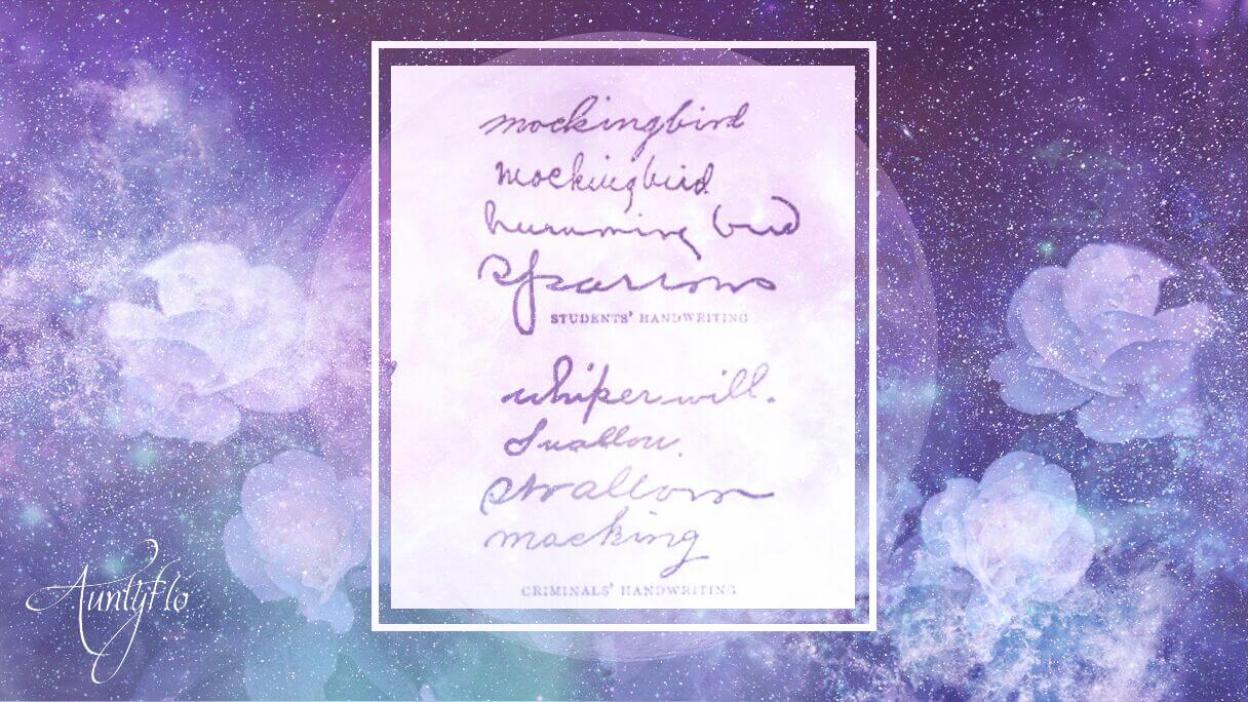 mockingbird
mockingbird
humming bird
Sparrows
STUDENTS' HANDWRITING
whiperwill.
Swallow.
Swallow
mocking
CRIMINALS' HANDWRITING
AuntyFlo